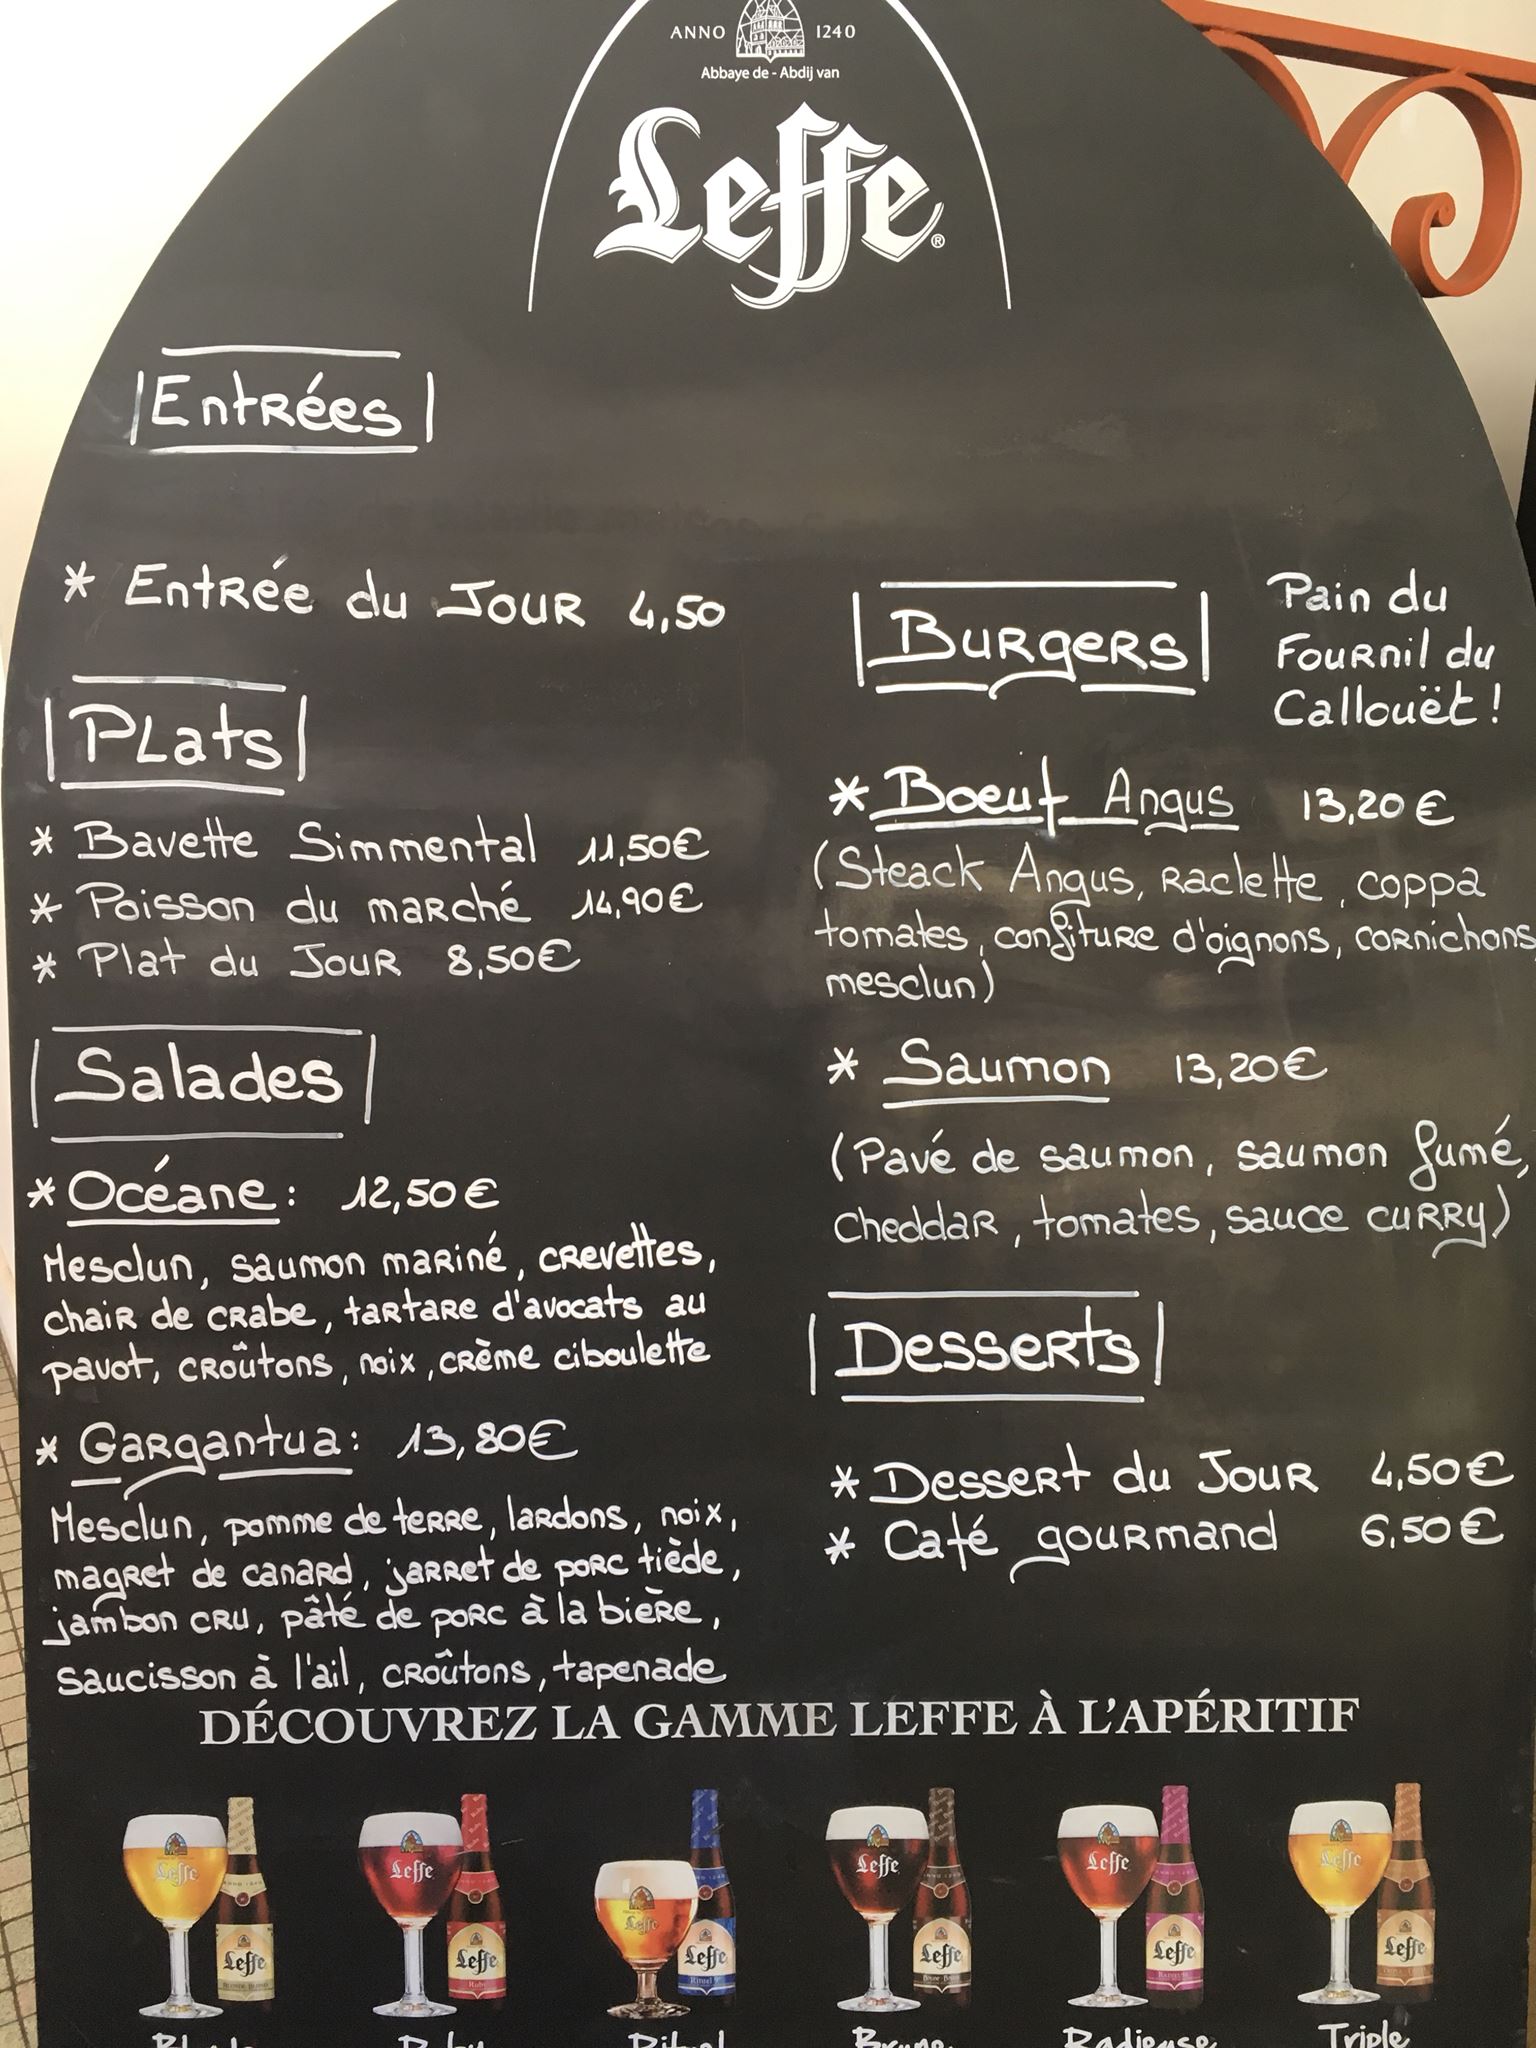 ANNO 1240
Abbaye de - Abdij van
Leffe®
Entrées
* Entrée du Jour 4,50
Plats
* Bavette Simmental 11,50€
* Poisson du marché 14,90€
* Plat du Jour 8,50€
Salades
* Océane : 12,50€
Mesclun, saumon mariné, crevettes,
chair de crabe, tartare d'avocats au
pavot, croûtons, noix, crème ciboulette
* Gargantua : 13,80€
Mesclun, pomme de terre, lardons, noix,
magret de canard, jarret de porc tiède,
jambon cru, pâté de porc à la bière,
saucisson à l'ail, croûtons, tapenade
Burgers
Pain du
Fournil du
Callouët !
* Boeuf Angus 13,20€
(Steack Angus, raclette, coppa
tomates, confiture d'oignons, cornichons,
mesclun)
* Saumon 13,20€
(Pavé de saumon, saumon fumé,
cheddar, tomates, sauce curry)
Desserts
* Dessert du Jour 4,50€
* Café gourmand 6,50€
DÉCOUVREZ LA GAMME LEFFE À L'APÉRITIF
Leffe Leffe Leffe Leffe Leffe Leffe
Leffe Leffe Leffe Leffe Leffe Leffe
Ruby Rituel 9° Radieuse
Ruby Rituel Brune Radieuse Triple